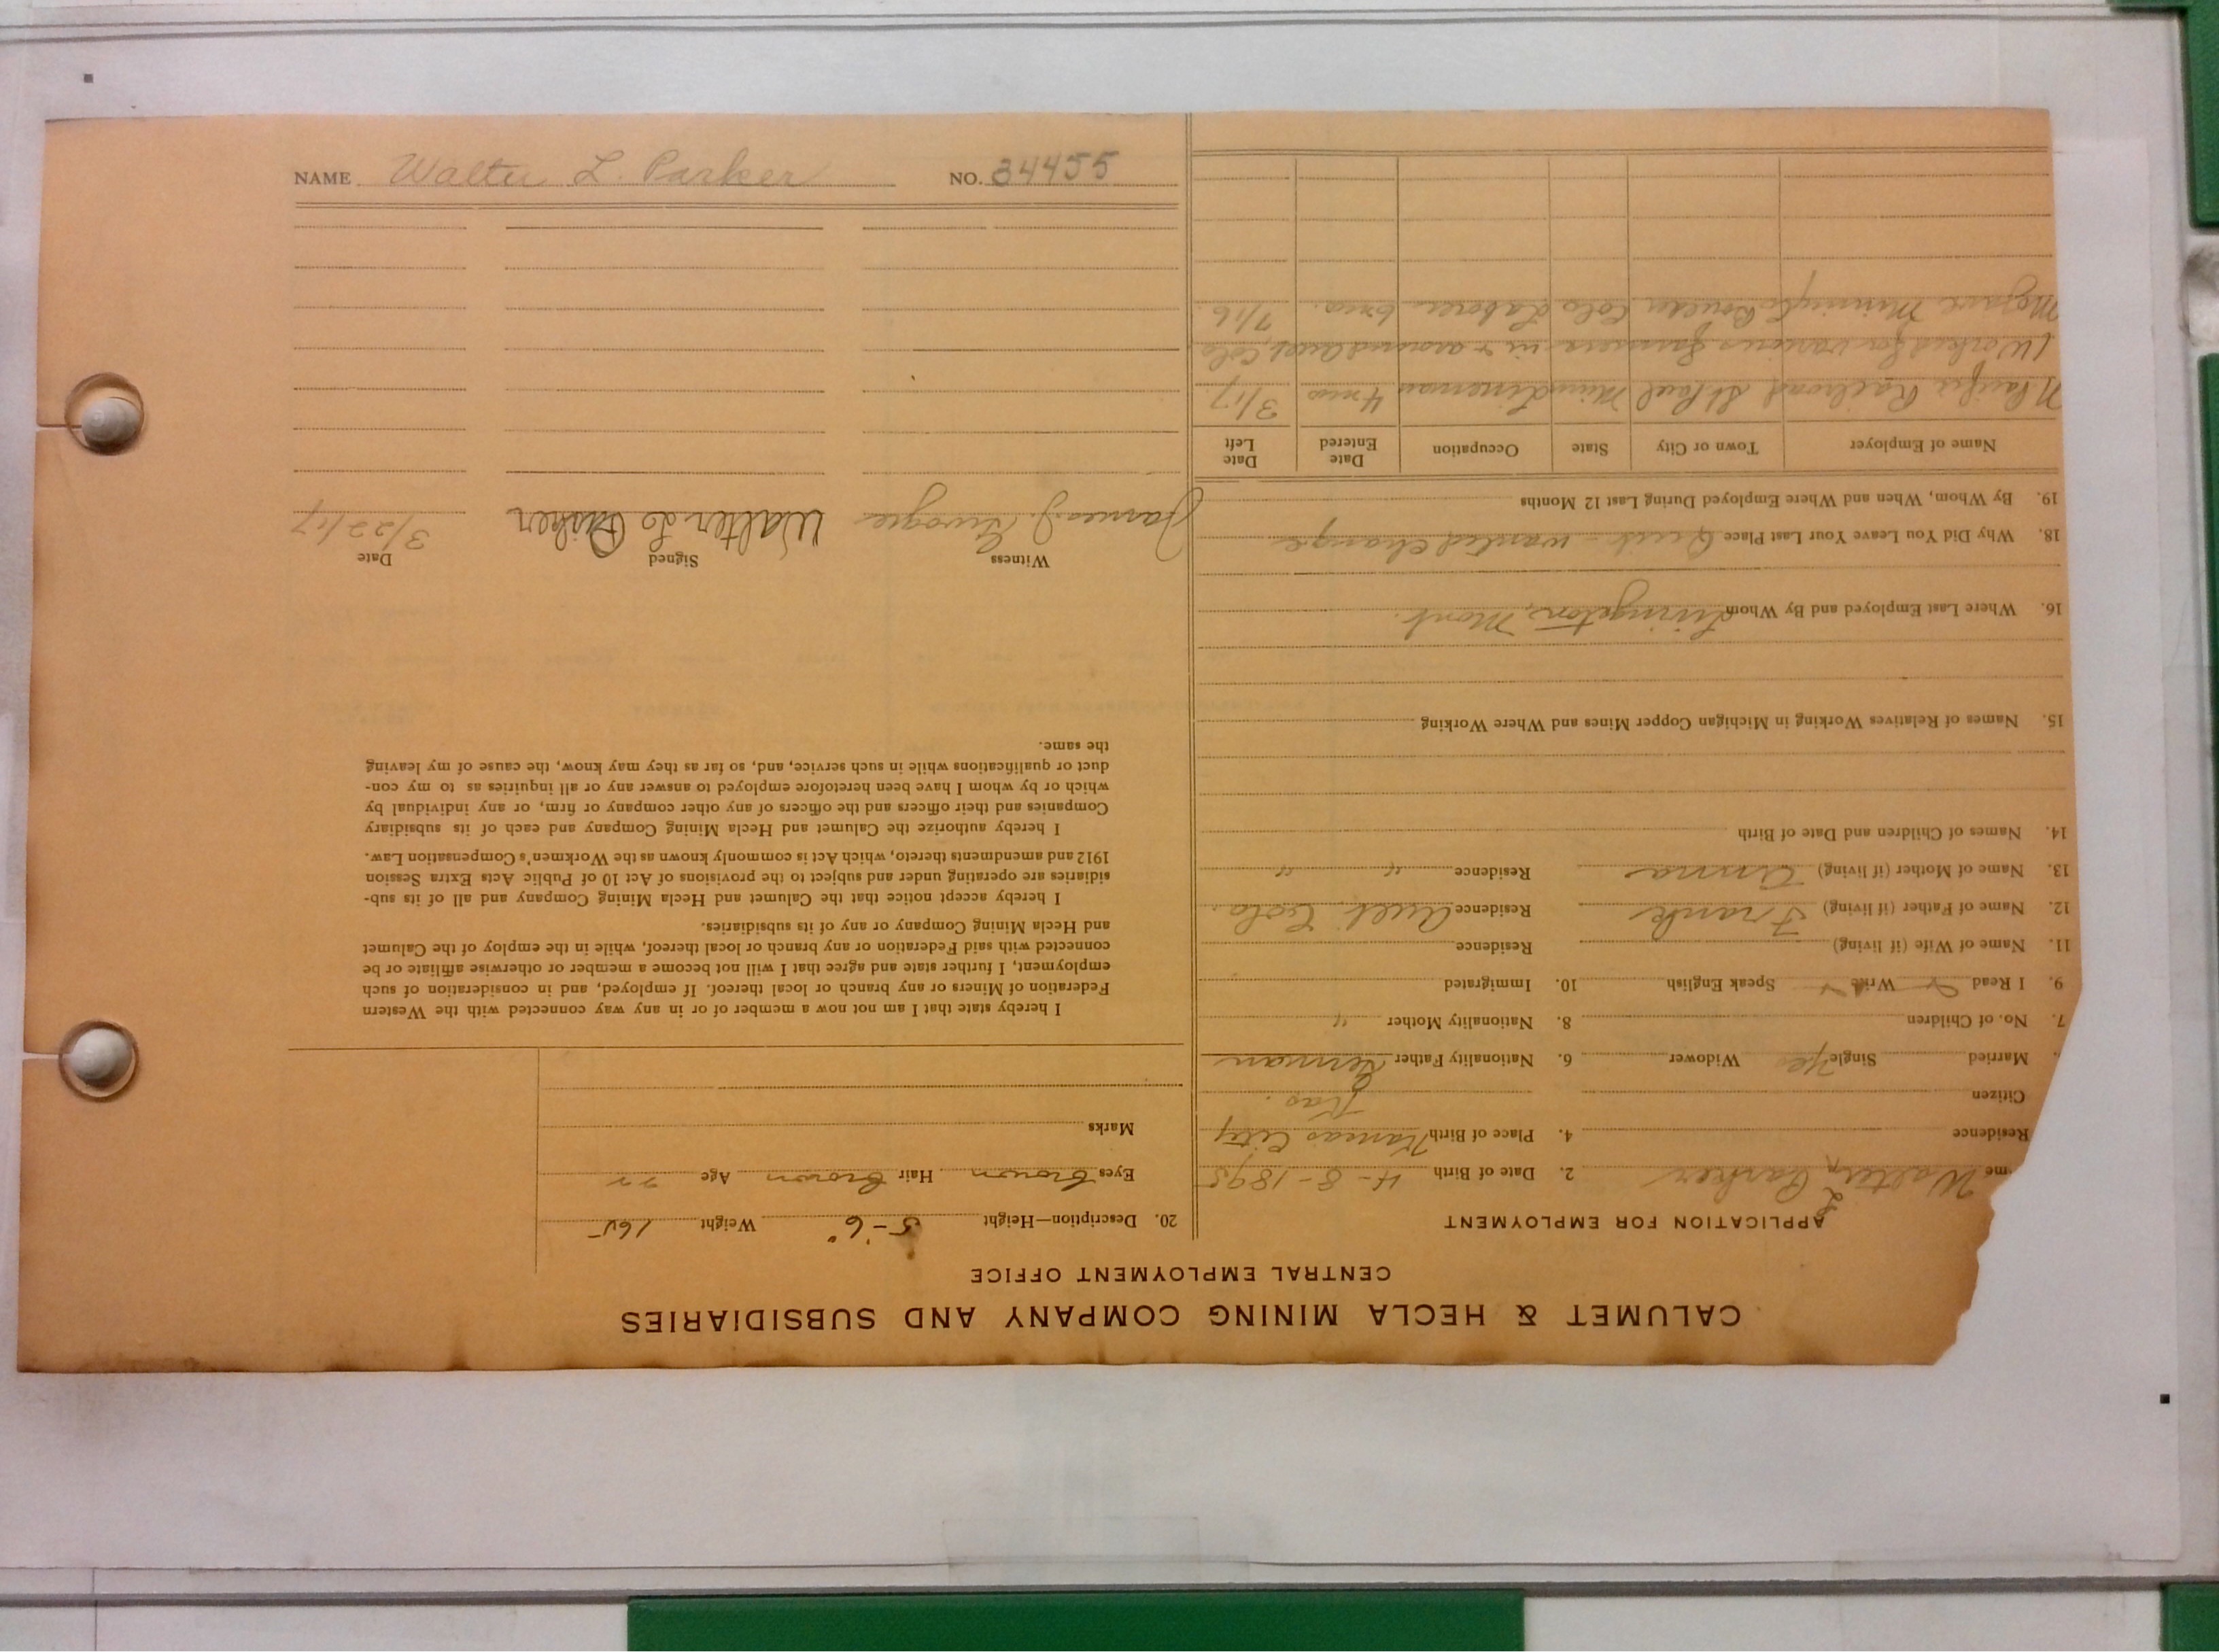 NAME Walter L. Parker NO. 34455
CALUMET & HECLA MINING COMPANY AND SUBSIDIARIES
CENTRAL EMPLOYMENT OFFICE
APPLICATION FOR EMPLOYMENT
me Walter L Parker 2. Date of Birth 4-8-1895
Residence 4. Place of Birth Kansas City
Kas.
Citizen
Married Single Yes Widower 6. Nationality Father German
7. No. of Children 8. Nationality Mother "
9. I Read Write Speak English 10. Immigrated
11. Name of Wife (if living) Residence
12. Name of Father (if living) Frank Residence Ault, Colo.
13. Name of Mother (if living) Anna Residence " "
14. Names of Children and Date of Birth
15. Names of Relatives Working in Michigan Copper Mines and Where Working
16. Where Last Employed and By Whom Livingston, Mont.
18. Why Did You Leave Your Last Place Quit - wanted change
19. By Whom, When and Where Employed During Last 12 Months
Name of Employer Town or City State Occupation Date Entered Date Left
N Pacific Railroad St Paul Minn Lineman 4 mos 3/17
Worked for various farmers in + around Ault, Colo
Mining Co Boulder Colo Laborer 6 mos. 7/16
20. Description—Height 5-6" Weight 165
Eyes Brown Hair Brown Age 22
Marks
I hereby state that I am not now a member of or in any way connected with the Western
Federation of Miners or any branch or local thereof. If employed, and in consideration of such
employment, I further state and agree that I will not become a member or otherwise affiliate or be
connected with said Federation or any branch or local thereof, while in the employ of the Calumet
and Hecla Mining Company or any of its subsidiaries.
I hereby accept notice that the Calumet and Hecla Mining Company and all of its sub-
sidiaries are operating under and subject to the provisions of Act 10 of Public Acts Extra Session
1912 and amendments thereto, which Act is commonly known as the Workmen's Compensation Law.
I hereby authorize the Calumet and Hecla Mining Company and each of its subsidiary
Companies and their officers and the officers of any other company or firm, or any individual by
which or by whom I have been heretofore employed to answer any or all inquiries as to my con-
duct or qualifications while in such service, and, so far as they may know, the cause of my leaving
the same.
Witness Signed Date
James J. Walter L Parker 3/22/17